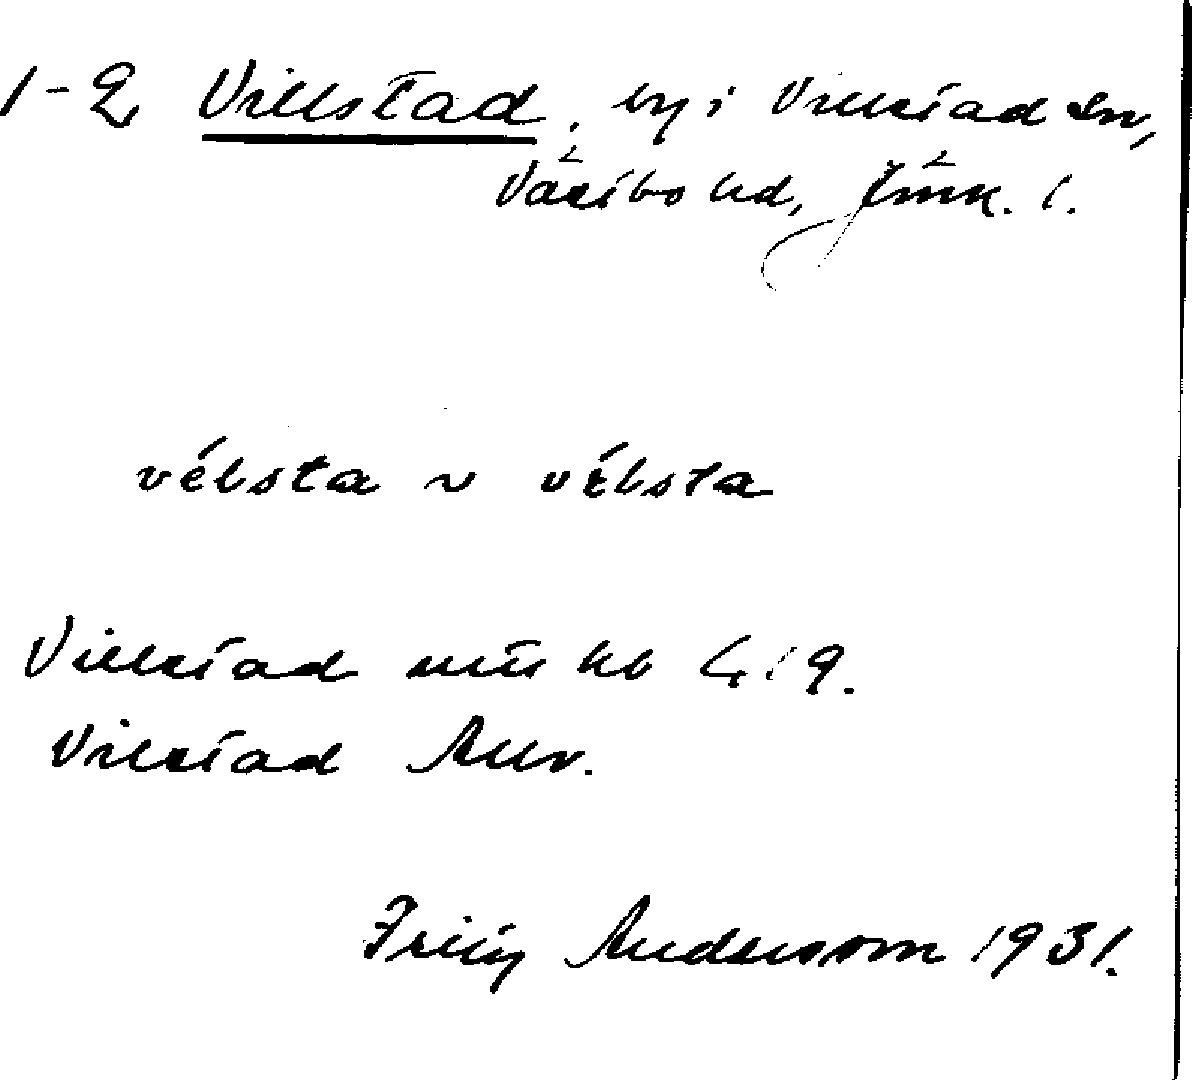 1-2 Villstad, by i Villstad sn,
Västbo hd, Jmk. l.
vélsta ~ vélsta
Villstad hb
Villstad
Fritz Andersson 1931.